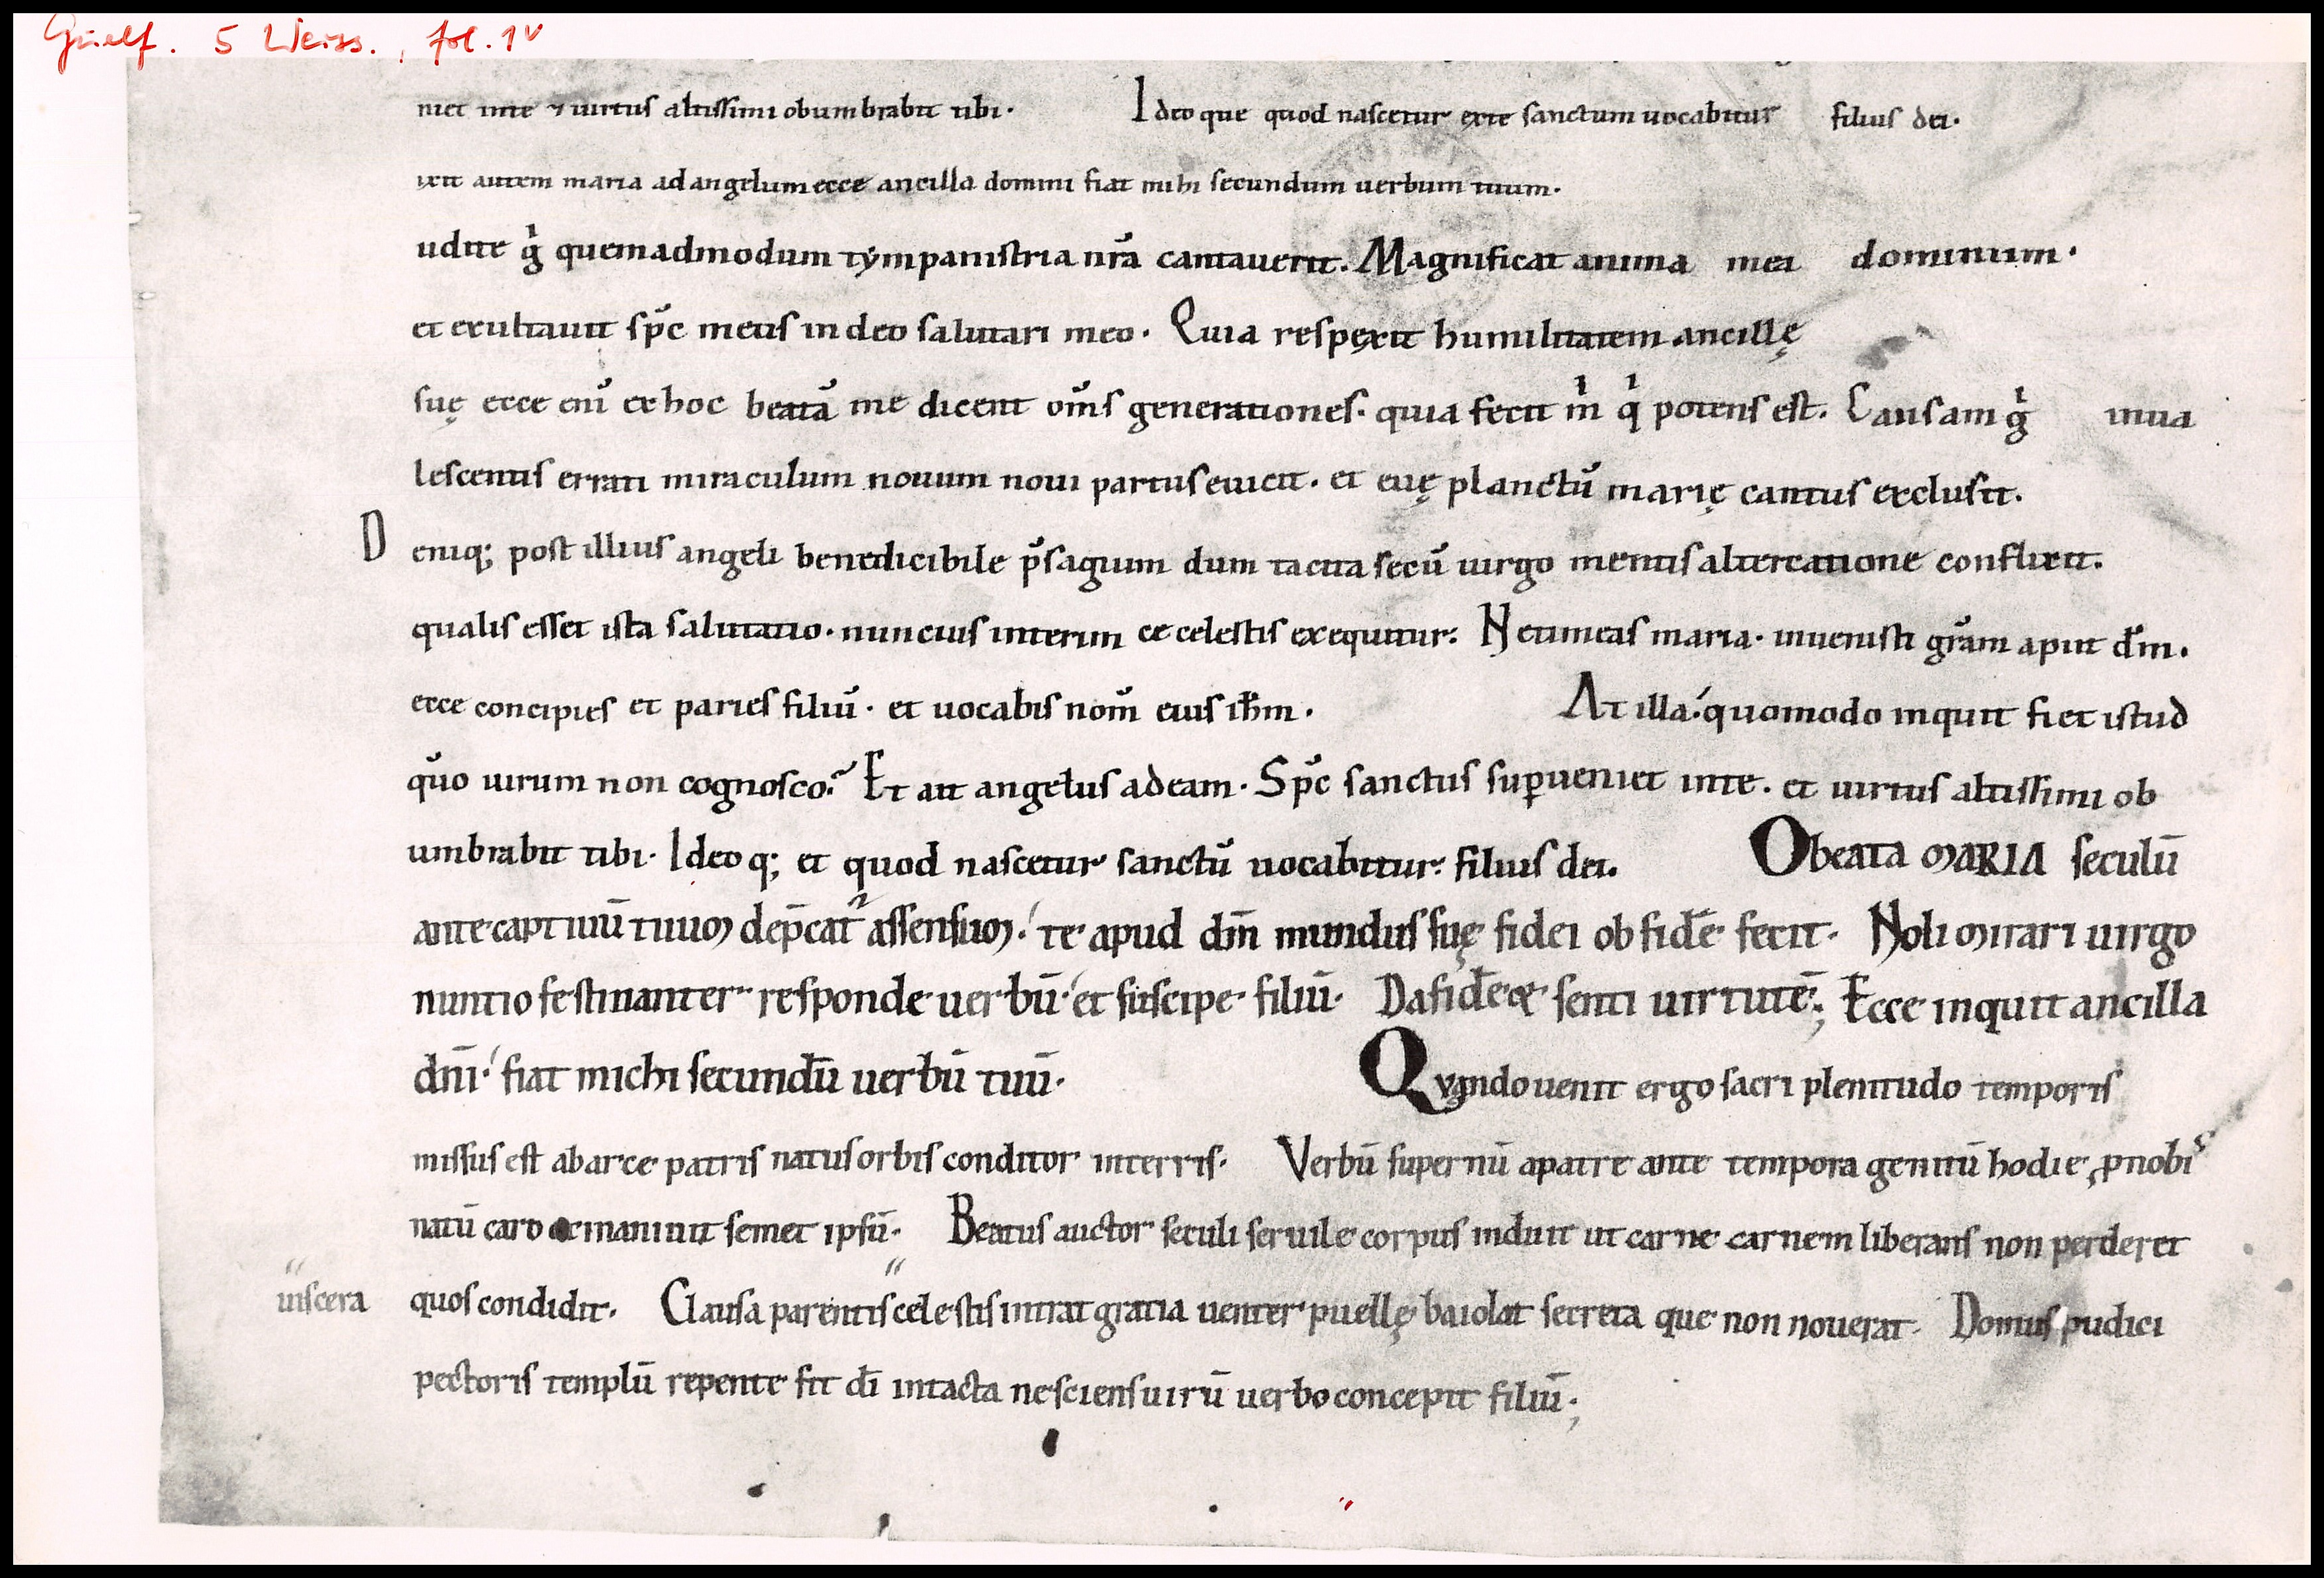 Guelf. 5 Weiss., fol. 1v
niet inte ⁊ uirtus altissimi obumbrabit tibi. Ideo que quod nascetur exte sanctum uocabitur filius dei.
ixit autem maria adangelum ecce ancilla domini fiat mihi secundum uerbum tuum.
udite g̍ quemadmodum tẏmpanistria nr̃a cantauerit. Magnificat anima mea dominum.
et exultauit sp̃c meus in deo salutari meo. Quia respęxit humilitatem ancillę
suę ecce enī ex hoc beatā me dicent om̄s generationes. quia fecit m̍ q̍ potens est. Causam g̍ inua
lescentis errati miraculum nouum noui partus euicit. et euę planctū marię cantus exclusit.
Deniq; post illius angeli benedicibile p̄sagium dum tacita secū uirgo mentis altercatione conflixit.
qualis esset ista salutatio. nuncius interim ce celestis exequitur: Netimeas maria. inuenisti gr̄am aput dm̄.
ecce concipies et paries filiū. et uocabis nom̄ eius ihm̄. At illa. quomodo inquit fiet istud
qūo uirum non cognosco? Et ait angelus adeam. Sp̄c sanctus suꝑueniet inte. et uirtus altissimi ob
umbrabit tibi. Ideo q; et quod nascetur sanctū uocabitur: filius dei. Obeata MARIA seculū
ante captiuū tuum dep̄cat᷑ assensum. te apud dm̄ mundus suę fidei obfidē fecit. Noli mirari uirgo
nuntio festinanter responde uerbū. et suscipe filiū. Dafidē & senti uirtutē; Ecce inquit ancilla
dn̄i. fiat michi secundū uerbū tuū. Quando uenit ergo sacri plenitudo temporis
missus est abarce patris natus orbis conditor interris. Verbū supernū apatre ante tempora genitū hodie ꝓnobis
natū caro exinaniuit semet ipsū. Beatus auctor seculi seruile corpus induit ut carne carnem liberans non perderet
uiscera quos condidit. Clausa parentis celestis intrat gratia uenter puellę baiolat secreta que non nouerat. Domus pudici
pectoris templū repente fit dī intacta nesciens uirū uerbo concepit filiū;